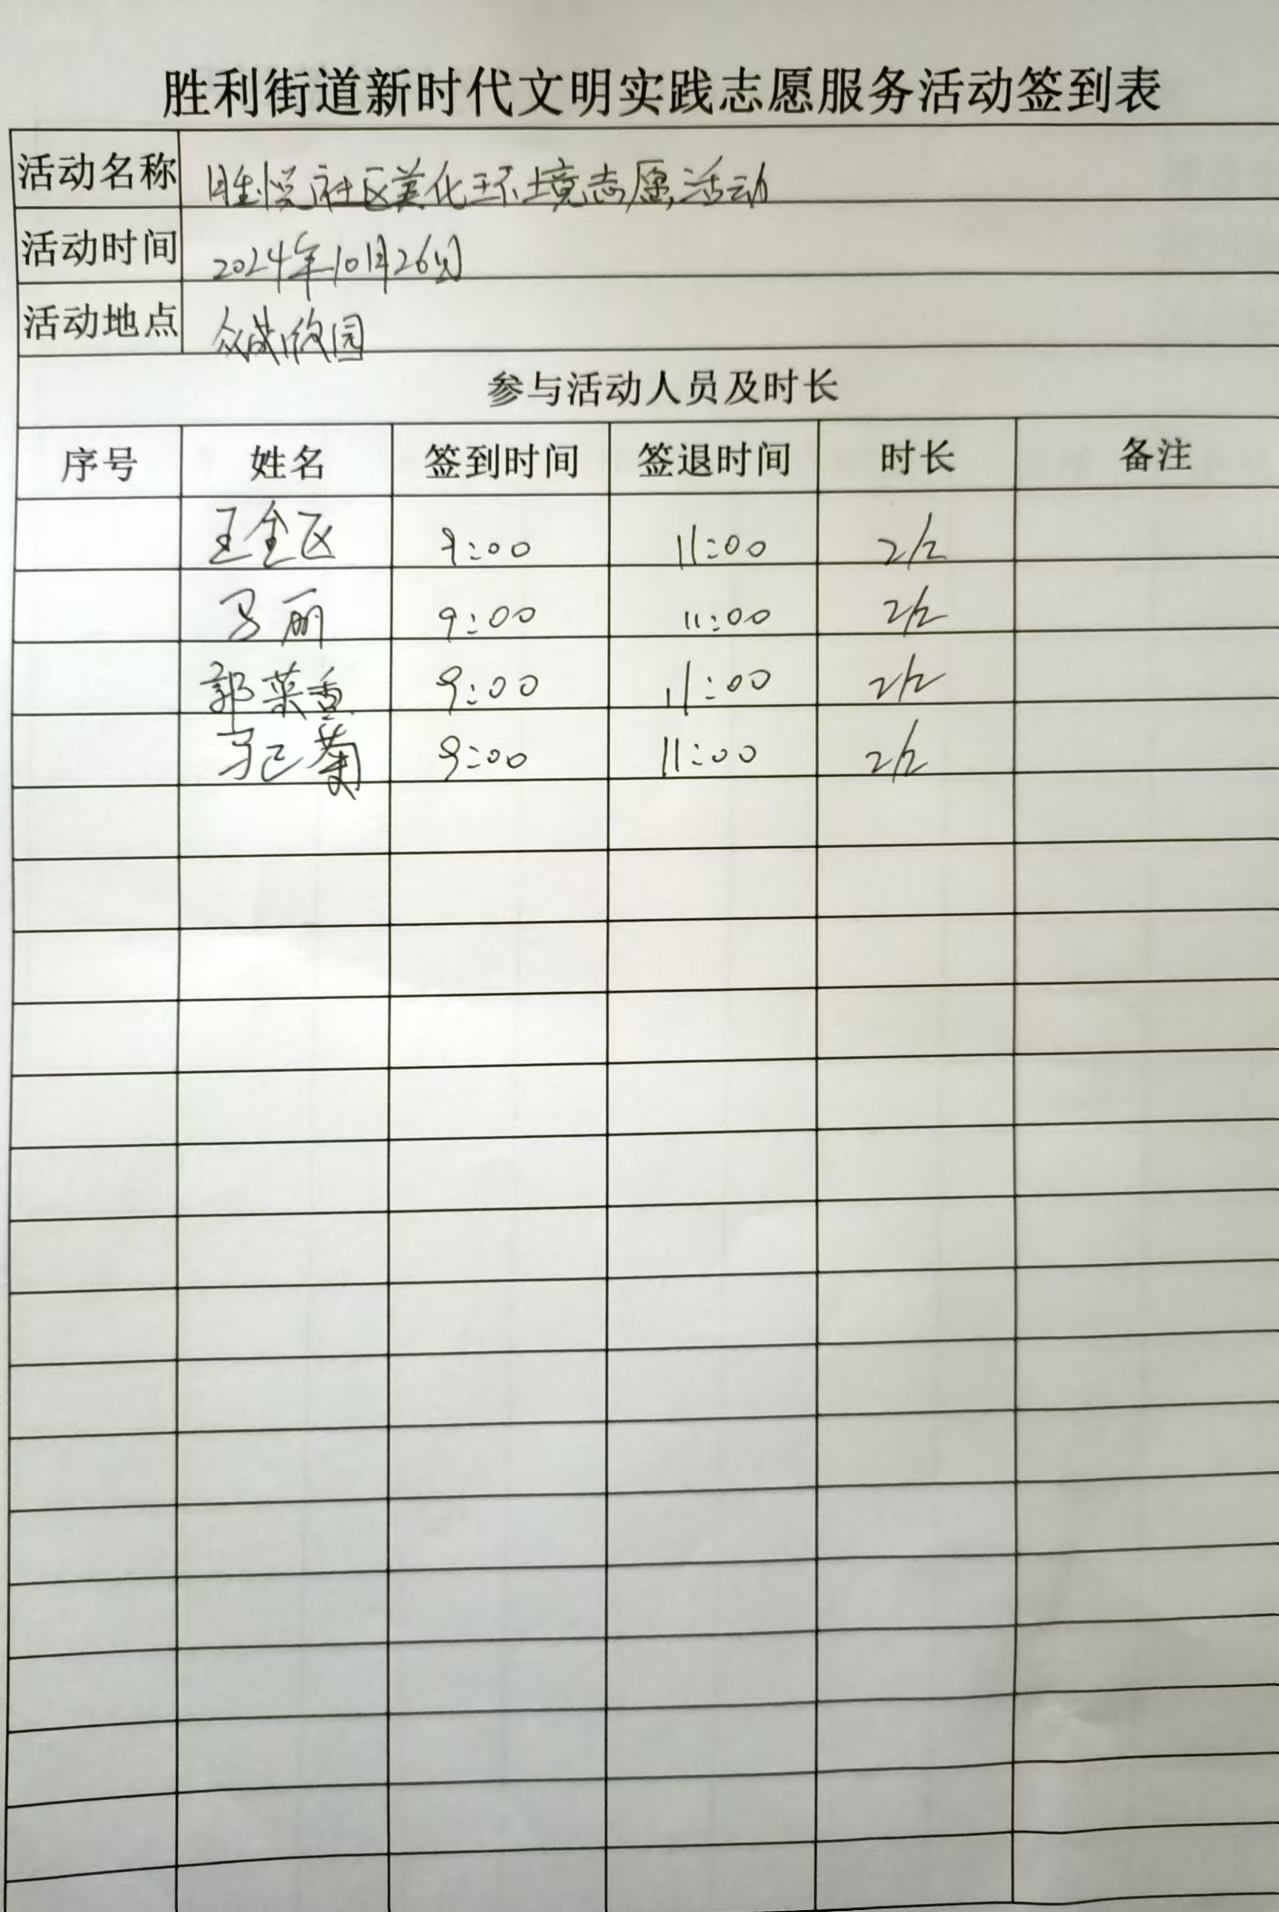 胜利街道新时代文明实践志愿服务活动签到表
活动名称 胜悦社区美化环境志愿活动
活动时间 2024年10月26日
活动地点 众成悦园
参与活动人员及时长
序号 姓名 签到时间 签退时间 时长 备注
王全区 9:00 11:00 2h
马丽 9:00 11:00 2h
郭菜香 9:00 11:00 2h
9:00 11:00 2h